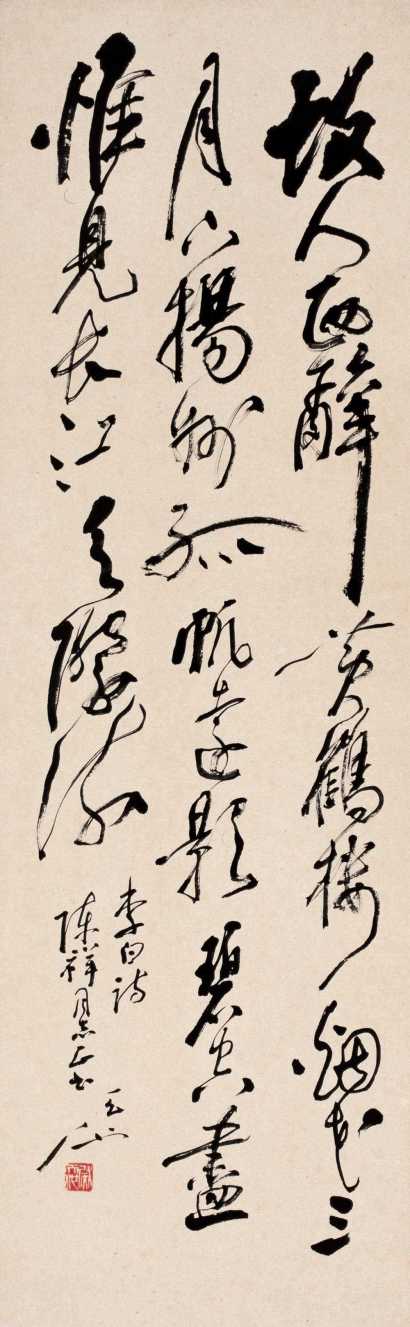 故人西辭黃鶴樓煙花三
月下揚州孤帆遠影碧空盡
惟見長江天際流
李白詩
陳祥同志正書